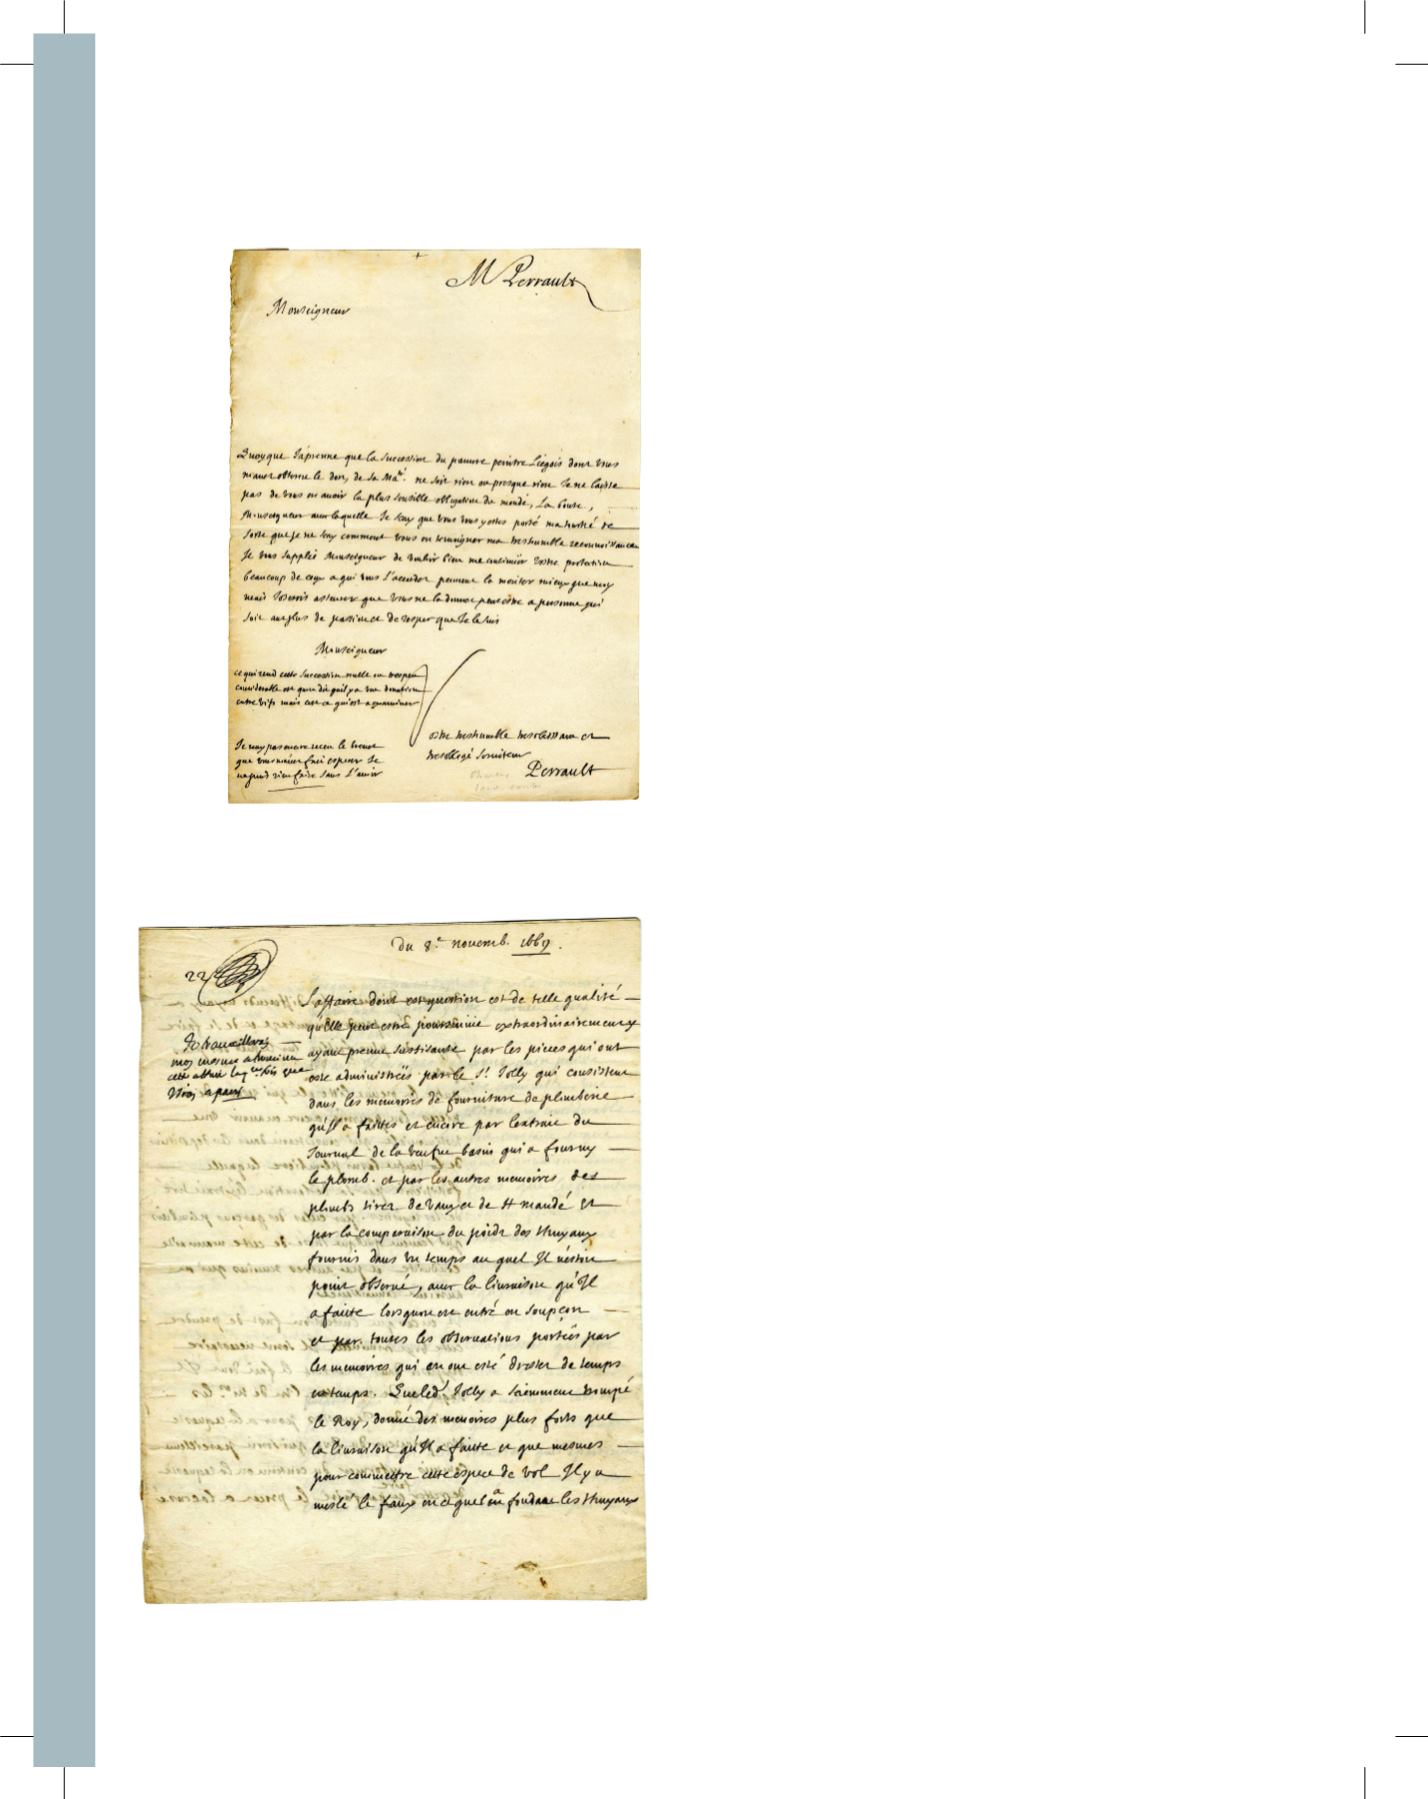 M Perrault
Monseigneur
Quoyque J'aprenne que la succession du pauure peintre Liegois dont vous
m'auez obtenu le don, de Sa Ma.té ne soit rien ou presque rien Je ne laisse
pas de vous en auoir la plus sensible obligation du monde, La bonté,
Monseigneur auec laquelle Je scay que vous vous y estes porté ma touché de
sorte que Je ne scay comment vous en temoigner ma treshumble reconnoissance
Je vous supplie Monseigneur de vouloir bien me continüer vostre protection
beaucoup de ceux a qui vous l'accordez peuuent la meriter mieux que moy
mais J'oserois asseurer que vous ne la donnez peut estre a personne qui
soit auec plus de passion et de respec que Je le suis
Monseigneur
ce qui rend cette succession nulle ou trespeu
considerable est qu'on dit qu'il y a une donation
entre vifs mais cest ce qui est a examiner
Vostre treshumble tresobeissant et
tresobligé seruiteur
Perrault
Je n'ay pas encore receu le breuet
que vous m'auez fait esperer Je
ne puis rien faire sans l'auoir
Du 8.e nouemb. 1669.
22
L'affaire dont est question est de telle qualité
qu'Elle peut estre poursuiuie extraordinairement y
ayant preuue suffisante par les pieces qui ont
esté administrées par le S.r Jolly qui consistent
dans les memoires de fourniture de plomberie
qu'Il a faittes et encore par l'extrait du
Journal de la veufue bazin qui a fourny
le plomb. et par les autres memoires des
plombs tirez de vaux et de St mandé et
par la comparaison du poids des thuyaux
fournis dans vn temps au quel Il n'estoit
point obserué, auec la liuraison qu'Il
a faitte lorsqu'on est entré en soupçon
et par toutes les obseruations portées par
les memoires qui en ont esté dressez de temps
en temps. Que led. Jolly a sciemment trompé
le Roy, donné des memoires plus forts que
la liuraison qu'Il a faitte et que mesmes
pour commettre cette espece de vol Il y a
meslé le faux en ce quel en fondant les thuyaux